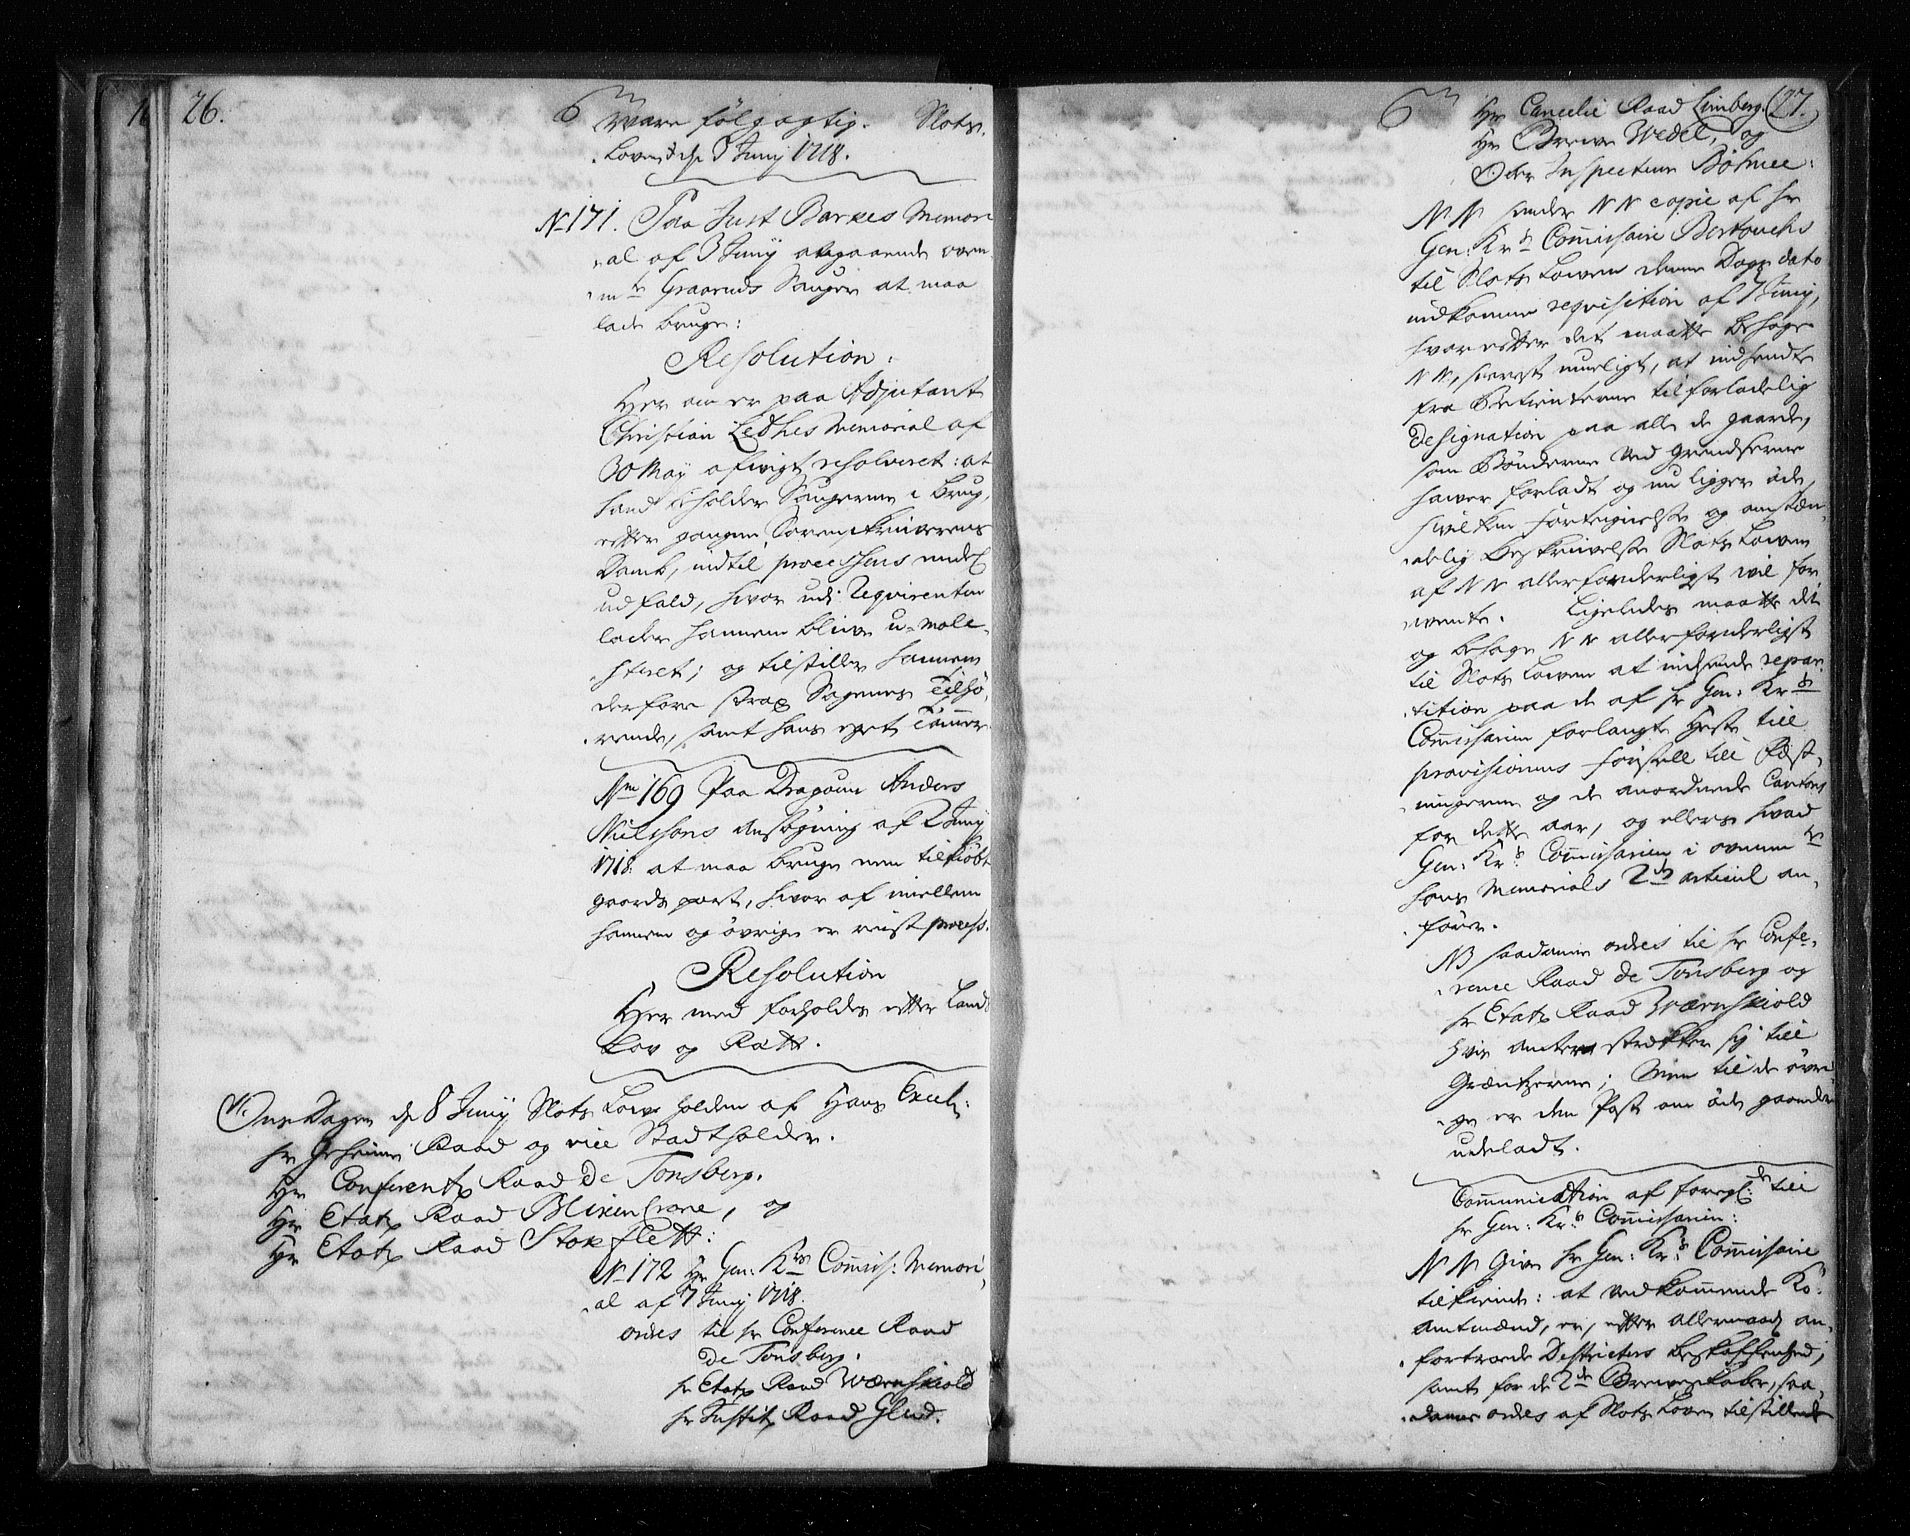 26.
være følgagtig. Slots
Loven d. 8 Junij 1718.
No 171. Paa Just Barkes Memori
al af 3 Junij angaaende oven
mte Graarud Sauger at maa
lade bruge:
Resolution:
Her om er paa Adjutant
Christian Ledhes Memorial af
30 Maij afvigt resolveret: at
hand beholder Saugerne i brug,
efter pangne Sorenskriverens
Domb, indtil processens endel
udfald, hvor udi Reqvirenten
lader hannem blive u-mole-
steret; og tilstiller hannem
derfore strax Sagernes Tilhø-
rende, samt hans eget Tømmer
No 169 Paa Dragoun Anders
Nielsens ansøgning af 2 Junij
1718: at maa bruge een tilkiøbt
gaards part, hvor af imellem
hannem og øvrige er reist process.
Resolution
Her med forholdes efter Lands
Lov og Rætt.
Ons Dagen d. 8 Junij Slots Lowe holden af Hans Excel:
hr Geheime Raad og vice Stadtholder.
Hr Conferentz Raad De Tonsberg.
Hr Etatz Raad Blixencrone, og
Hr Etatz Raad Stokflett:
No 172 Hr Gen: Krigs Commiss: Memori
al af 7 Junij 1718.
ordres til hr Conference Raad
De Tonsberg.
hr Etatz Raad Wærnskiold
hr Justitz Raad Glud.
27.
Hr Cancelie Raad Limberg
Hr Brewe Wedel, og
Ober Inspecteur Böhme:
NN sender NN copie af hr
Gen: Krs Commissaire Bertouchs
til Slots Lowen denne Dags dato
indkomne reqvisition af 7 Junij,
hvor efter det maatte behage
NN, snarest mueligt, at indsende
fra Betienterne tilforladelig
Designation paa alle de gaarde,
som Bønderne ved grendserne
hawer forladt og nu ligger øde,
hvilken fortegnelse og omstæn-
delig beskrivelse Slots Lowen
af NN allerforderligst wil for
wente. Ligeledes maatte det
og behage NN allerforderligst
til Slots Lowen at indsende repar-
tition paa de af hr Gen: Krs
Commissarien forlangte Heste till
provisionens förssell till Fæst-
ningerne og de anordnede Cantons
for dette aar, og ellers hvad
Gen: Krs: Commissarien i ovenmte
hans Memorials 2den articul an-
fører.
NB saadanne ordres til hr Confe-
rence Raad de Tonsberg og
hr Etatz Raad Wærnskiold
hvis Amter strekker sig till
Grændtzerne; Men til de øvri
ge er den Post om øde gaarder
udeladt.
Communication af foregl:de till
hr Gen: Krs: Commissarien:
NN Giver hr Gen: Krs: Commissaire
tilkiende: at vedkommende Ko:
Amtmænd, er, efter allernaad: an-
fortroede Districters beskaffenhed,
samt for de 2de Grevskaber, saa-
danne ordres af Slots Loven tilstillede